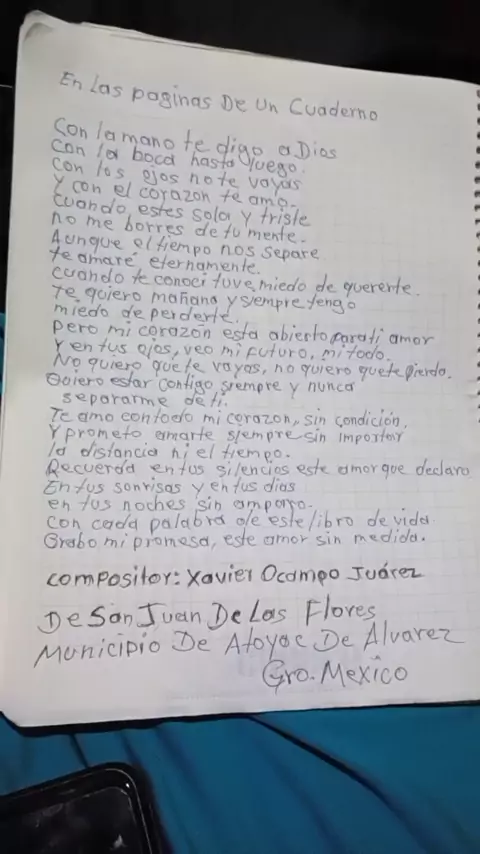 En Las paginas De un Cuaderno
Con la mano te digo a Dios
Con la boca hasta luego.
Con los ojos no te vayas
Y con el corazón te amo.
Cuando estes sola y triste
no me borres de tu mente.
Aunque el tiempo nos separe
te amaré eternamente.
Cuando te conocí tuve miedo de quererte.
Te quiero mañana y siempre tengo
miedo de perderte.
pero mi corazón esta abierto para ti amor
Y en tus ojos, veo mi futuro, mi todo.
No quiero que te vayas, no quiero que te pierda.
Quiero estar contigo siempre y nunca
separarme de ti.
Te amo con todo mi corazon, sin condición.
Y prometo amarte siempre sin importar
la distancia ni el tiempo.
Recuerda en tus silencios este amor que declaro
En tus sonrisas y en tus dias
en tus noches sin amparo.
con cada palabra de este libro de vida.
Grabo mi promesa, este amor sin medida.
compositor: Xavier Ocampo Juárez
De San Juan De Las Flores
Municipio De Atoyac De Alvarez
Gro. Mexico